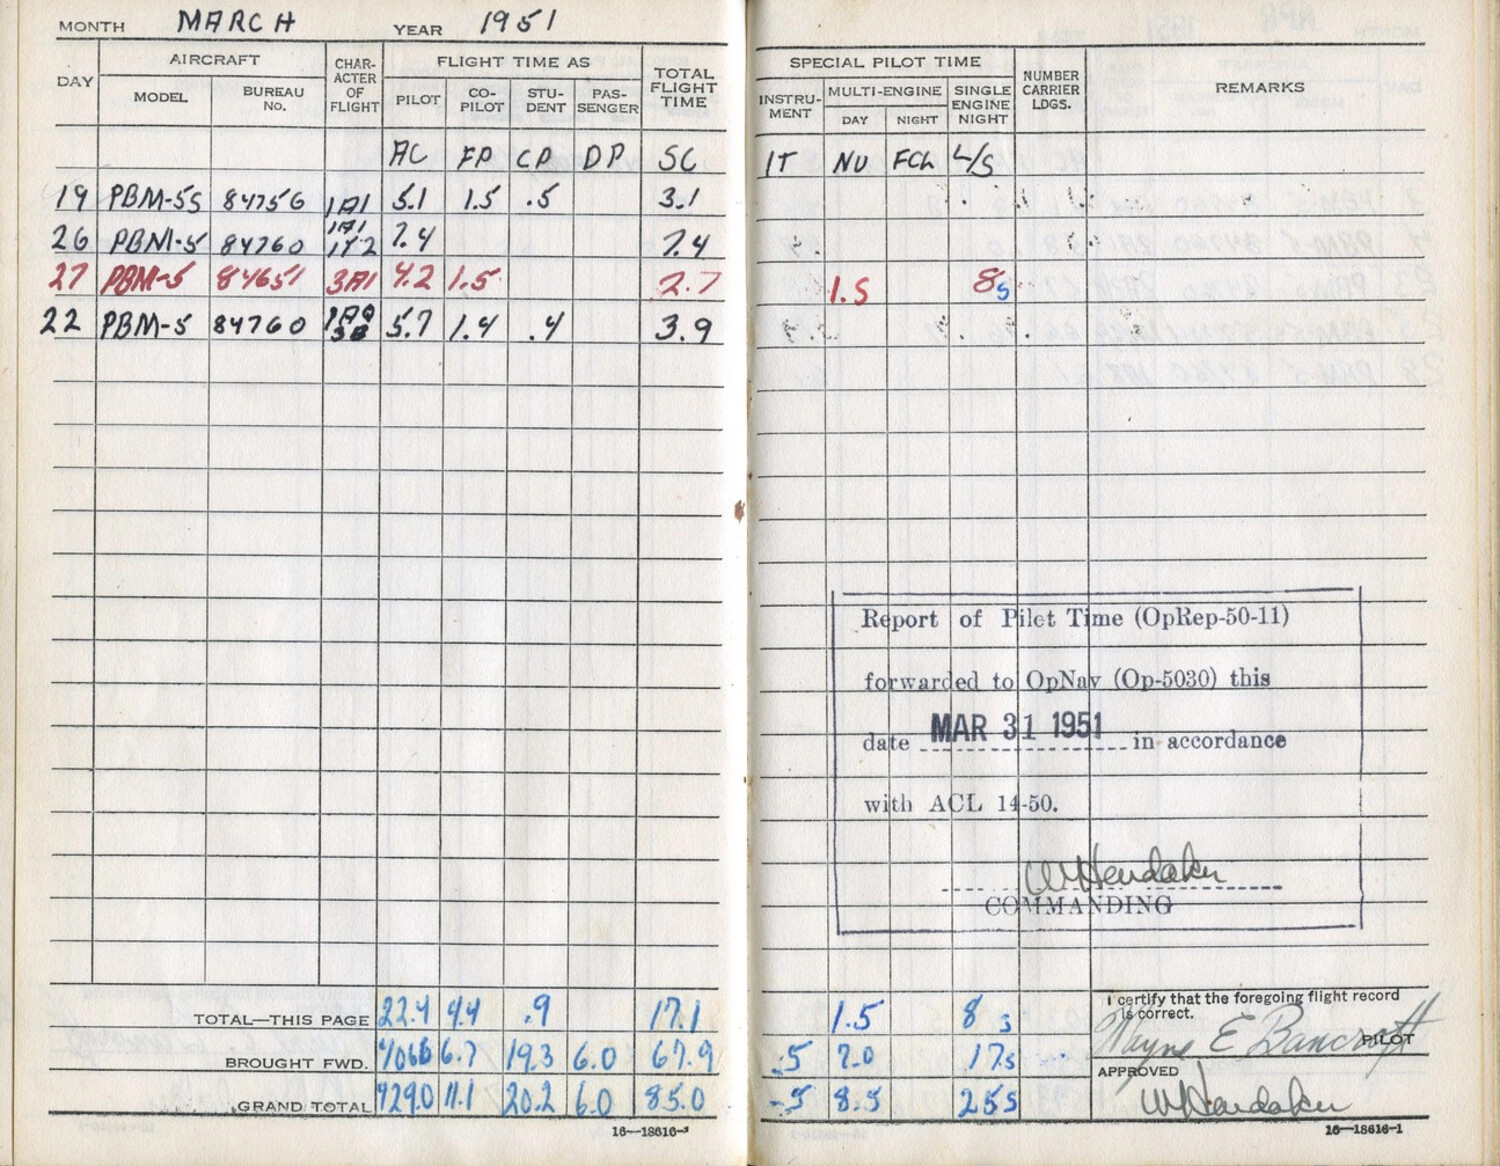 MONTH MARCH YEAR 1951
DAY AIRCRAFT CHARACTER OF FLIGHT FLIGHT TIME AS TOTAL FLIGHT TIME
MODEL BUREAU No. PILOT CO-PILOT STU-DENT PAS-SENGER
AC FP CP DP SC
19 PBM-5S 84756 1A1 5.1 1.5 .5 3.1
26 PBM-5 84760 1A1 1T2 7.4 7.4
27 PBM-5 84651 3A1 4.2 1.5 2.7
22 PBM-5 84760 5.7 1.4 .4 3.9
TOTAL—THIS PAGE 22.4 4.4 .9 17.1
BROUGHT FWD. 706.6 6.7 19.3 6.0 67.9
GRAND TOTAL 729.0 11.1 20.2 6.0 85.0
16—18616-1
SPECIAL PILOT TIME NUMBER CARRIER LDGS. REMARKS
INSTRU-MENT MULTI-ENGINE SINGLE ENGINE NIGHT
DAY NIGHT
IT NU FCL L/S
1.5 8s
Report of Pilot Time (OpRep-50-11)
forwarded to OpNav (Op-5030) this
date MAR 31 1951 in accordance
with ACL 14-50.
W Hendaker
COMMANDING
1.5 8s
.5 7.0 17s
.5 8.5 25s
I certify that the foregoing flight record
is correct.
Wayne E Bancroft PILOT
APPROVED
W Hendaker
16—18616-1